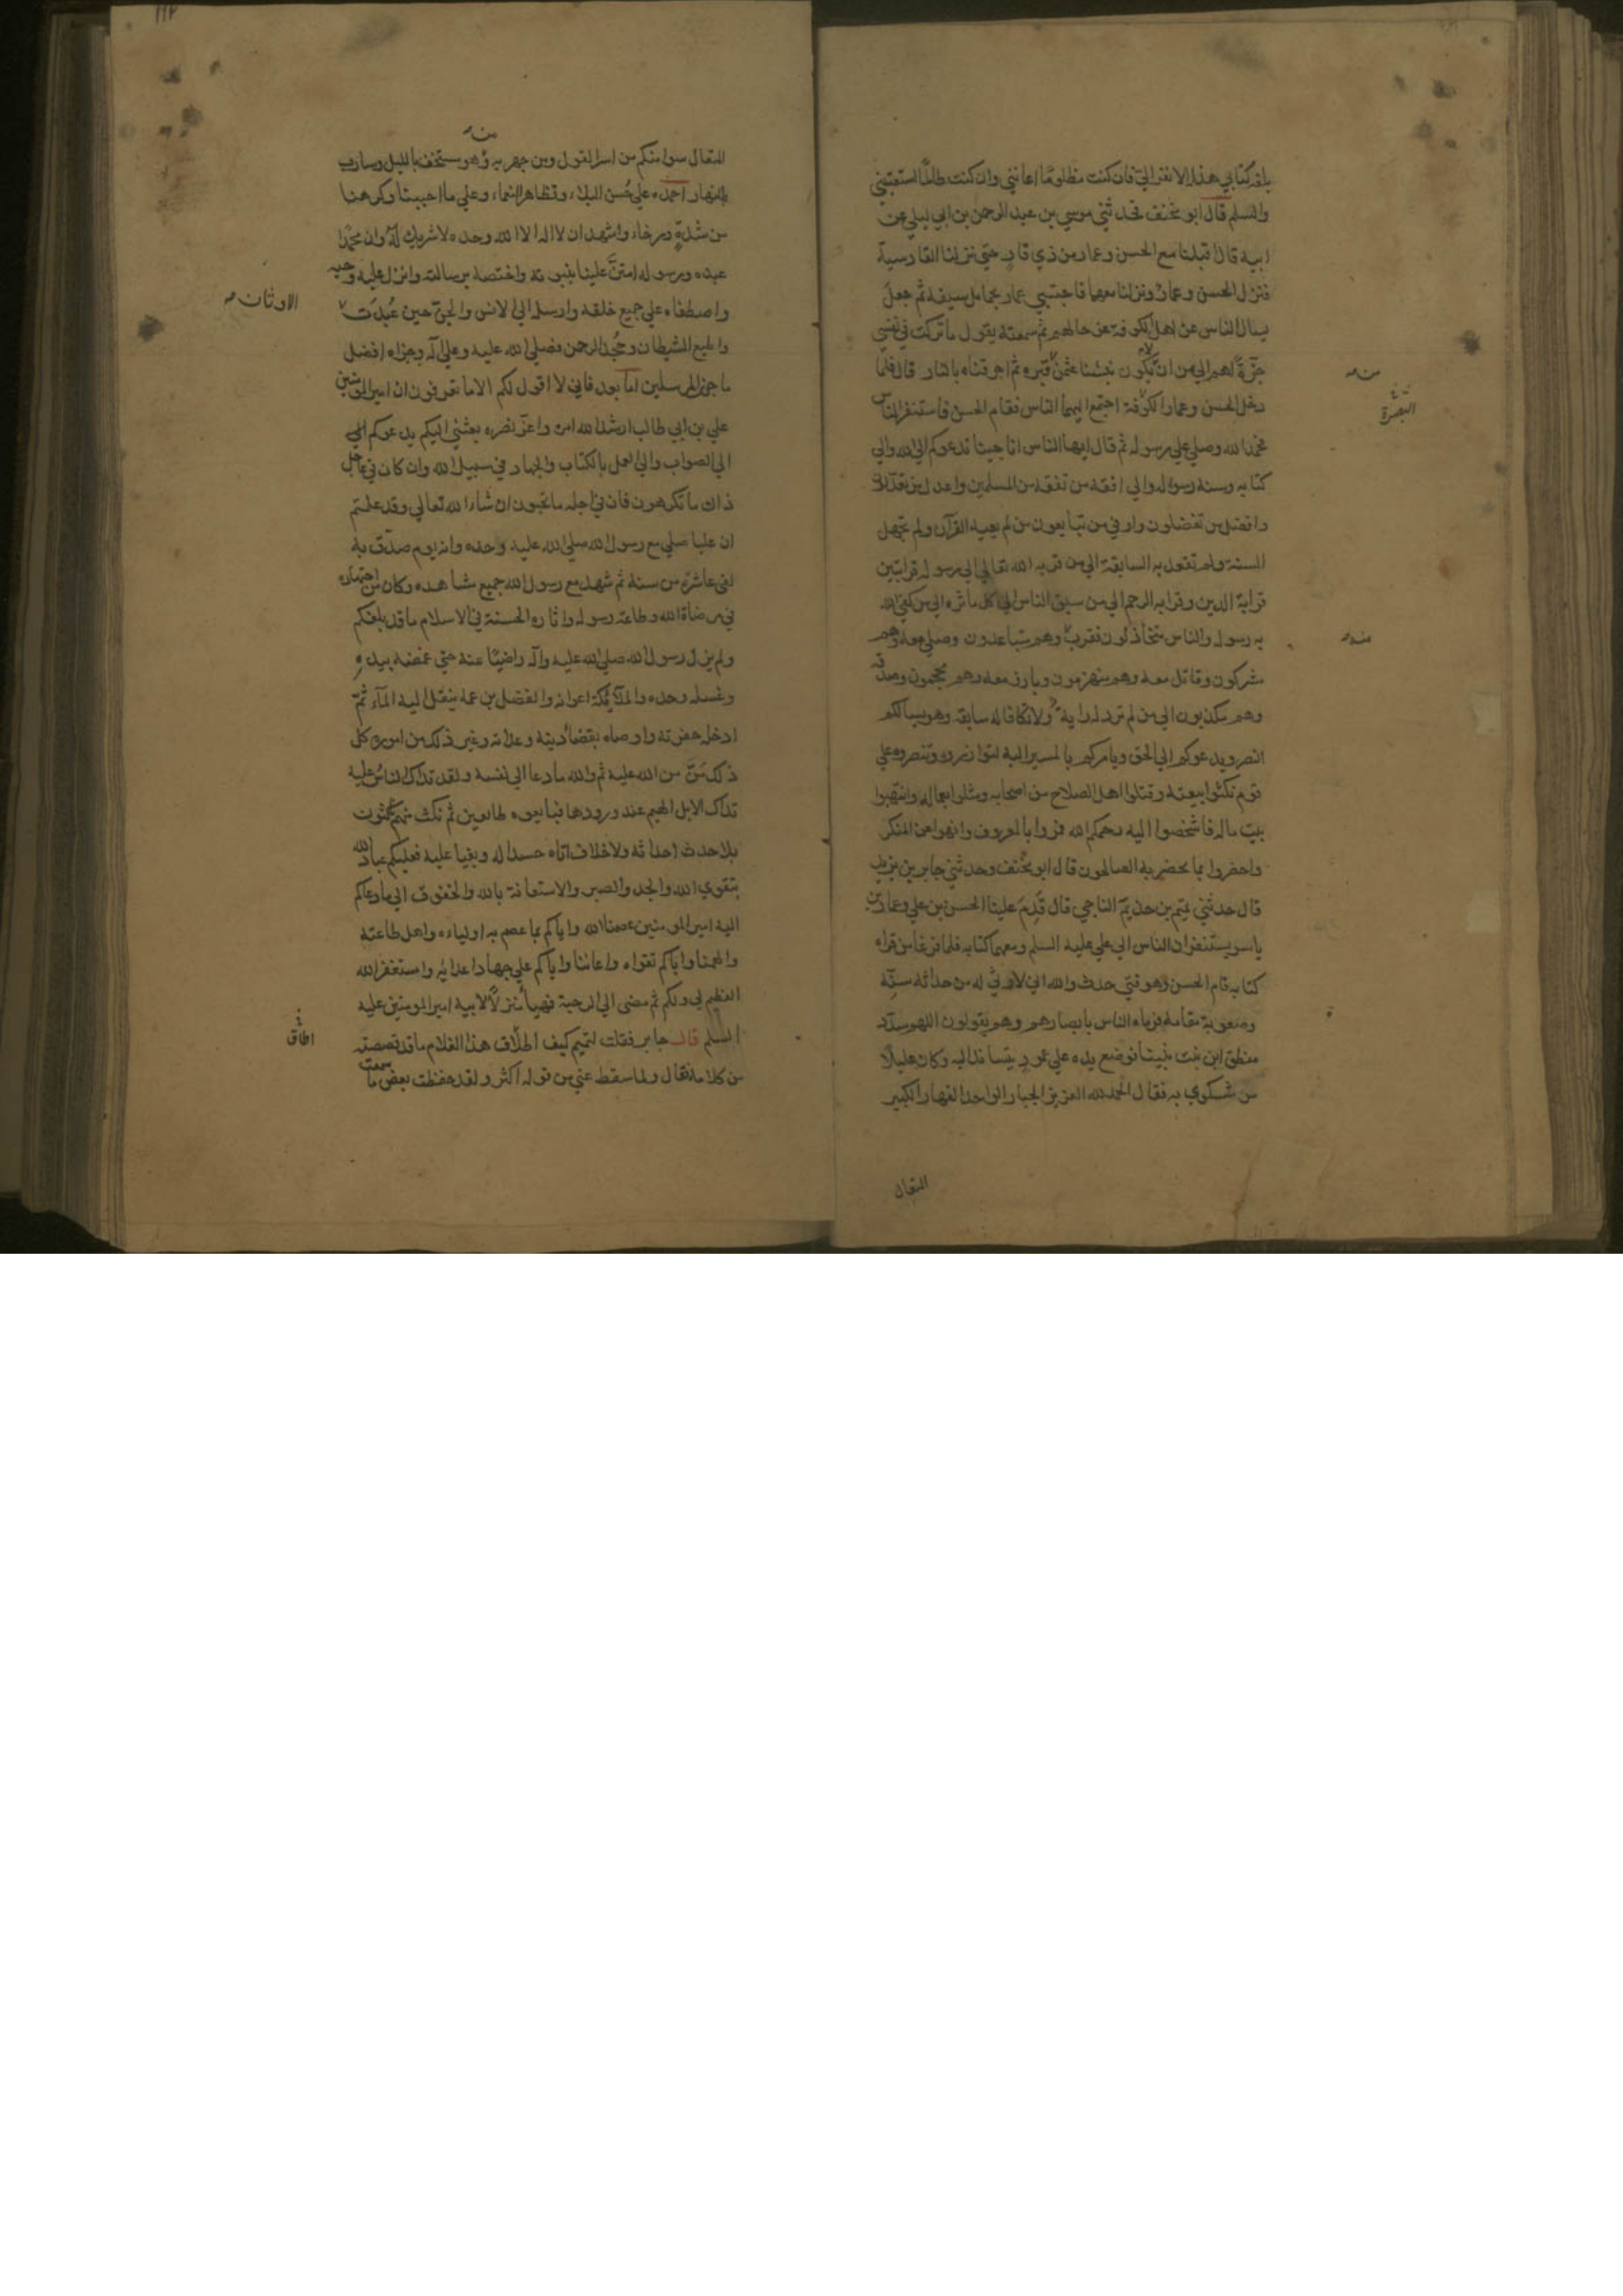 بلغه كتابي هذا الا نفر الي فان كنت مظلوما اعانني وان كنت ظالما استعتبني
والسلم قال ابو مخنف فحدثني موسي بن عبد الرحمن بن ابي ليلي عن
ابيه قال اقبلنا مع الحسن وعمار من ذي قار حتي نزلنا القادسية
فنزل الحسن وعمار ونزلنا معهما فاحتبي عمار بحمايل سيفه ثم جعل
يسال الناس عن اهل الكوفة وعن حالهم ثم سمعته يقول ما تركت في نفسي
حزة اهم الي من ان لا نكون نبشنا عثمن من قبره ثم احرقناه بالنار قال فلما
دخل الحسن وعمار الكوفة اجتمع اليهما الناس فقام الحسن فاستنفر الناس
فحمد الله وصلي علي رسوله ثم قال ايها الناس انا جينا ندعوكم الي الله والي
كتابه وسنة رسوله والي افقه من تفقه من المسلمين واعدل من تعدلون
وافضل من تفضلون واوفي من تبايعون من لم يعيه القرآن ولم تجهله
السنة ولم تقعد به السابقة الي من قربه الله تعالي الي رسوله قرابتين
قرابة الدين وقرابة الرحم الي من سبق الناس الي كل ماثرة الي من كفي الله
به رسوله والناس متخاذلون فقرب منه وهم متباعدون وصلي معه وهم
مشركون وقاتل معه وهم منهزمون وبارز معه وهم محجمون وصدقه
وهم مكذبون الي من لم ترد له راية ولا تكافا له سابقة وهو يسالكم
النصر ويدعوكم الي الحق ويامركم بالمسير اليه لتوازروه وتنصروه علي
قوم نكثوا بيعته وقتلوا اهل الصلاح من اصحابه ومثلوا بعماله وانتهبوا
بيت ماله فاشخصوا اليه رحمكم الله فمروا بالمعروف وانهوا عن المنكر
واحضروا بما يحضر به الصالحون قال ابو مخنف وحدثني جابر بن يزيد
قال حدثني تميم بن حذيم الناجي قال قدم علينا الحسن بن علي وعمار بن
ياسر يستنفران الناس الي علي عليه السلم ومعهما كتابه فلما فرغا من قراة
كتابه قام الحسن وهو فتي حدث والله اني لارثي له من حداثة سنه
وصعوبة مقامه فرماه الناس بابصارهم وهم يقولون اللهم سدد
منطق ابن بنت نبينا فوضع يده علي عمود يتساند اليه وكان عليلا
من شكوي به فقال الحمد لله العزيز الجبار الواحد القهار الكبير
المتعال
منه
البصرة
منه
١١٢
المتعال سوا منكم من اسر القول ومن جهر به ومن هو مستخف بالليل وسارب
بالنهار احمده علي حسن البلاء وتظاهر النعماء وعلي ما احببنا وكرهنا
من شدة ورخاء واشهد ان لا اله الا الله وحده لا شريك له وان محمدا
عبده ورسوله امتن علينا بنبوته واختصه برسالته وانزل عليه وحيه
واصطفاه علي جميع خلقه وارسله الي الانس والجن حين عبدت
واطيع الشيطان وجحد الرحمن فصلي الله عليه وعلي آله وجزاه افضل
ما جزي المرسلين اما بعد فاني لا اقول لكم الا ما تعرفون ان امير المومنين
علي بن ابي طالب ارشد الله امره واعز نصره بعثني اليكم يدعوكم الي
الي الصواب والي العمل بالكتاب والجهاد في سبيل الله وان كان في عاجل
ذاك ما تكرهون فان في اجله ما تحبون ان شاء الله تعالي وقد علمتم
ان عليا صلي مع رسول الله صلي الله عليه وحده وانه يوم صدق به
لفي عاشرة من سنه ثم شهد مع رسول الله جميع مشاهده وكان من اجتهاده
في مرضاة الله وطاعة رسوله واثاره الحسنة في الاسلام ما قد بلغكم
ولم يزل رسول الله صلي الله عليه وآله راضيا عنه حتي غمضه بيده
وغسله وحده والملائكة اعوانه والفضل بن عمه ينقل اليه الماء ثم
ادخله حفرته واوصاه بقضاء دينه وعداته وغير ذلك من اموره كل
ذلك من من الله عليه ثم والله ما دعا الي نفسه ولقد تداك الناس عليه
تداك الابل الهيم عند ورودها فبايعوه طايعين ثم نكث منهم ناكثون
بلا حدث احدثه ولا خلاف اتاه حسدا له وبغيا عليه فعليكم عباد الله
بتقوي الله والجد والصبر والاستعانة بالله والخفوف الي ما دعاكم
اليه امير المومنين عصمنا الله واياكم بما عصم به اولياءه واهل طاعته
والهمنا واياكم تقواه واعاننا واياكم علي جهاد اعدايه واستغفر الله
العظيم لي ولكم ثم مضي الي الرحبة فهيا منزلا لابيه امير المومنين عليه
السلم قال جابر فقلت لتميم كيف اطاق هذا الغلام ما قد قصصته
من كلامه فقال ولما سقط عني من قوله اكثر ولقد حفظت بعض ما سمعت
منه
الاوثان
اطاق